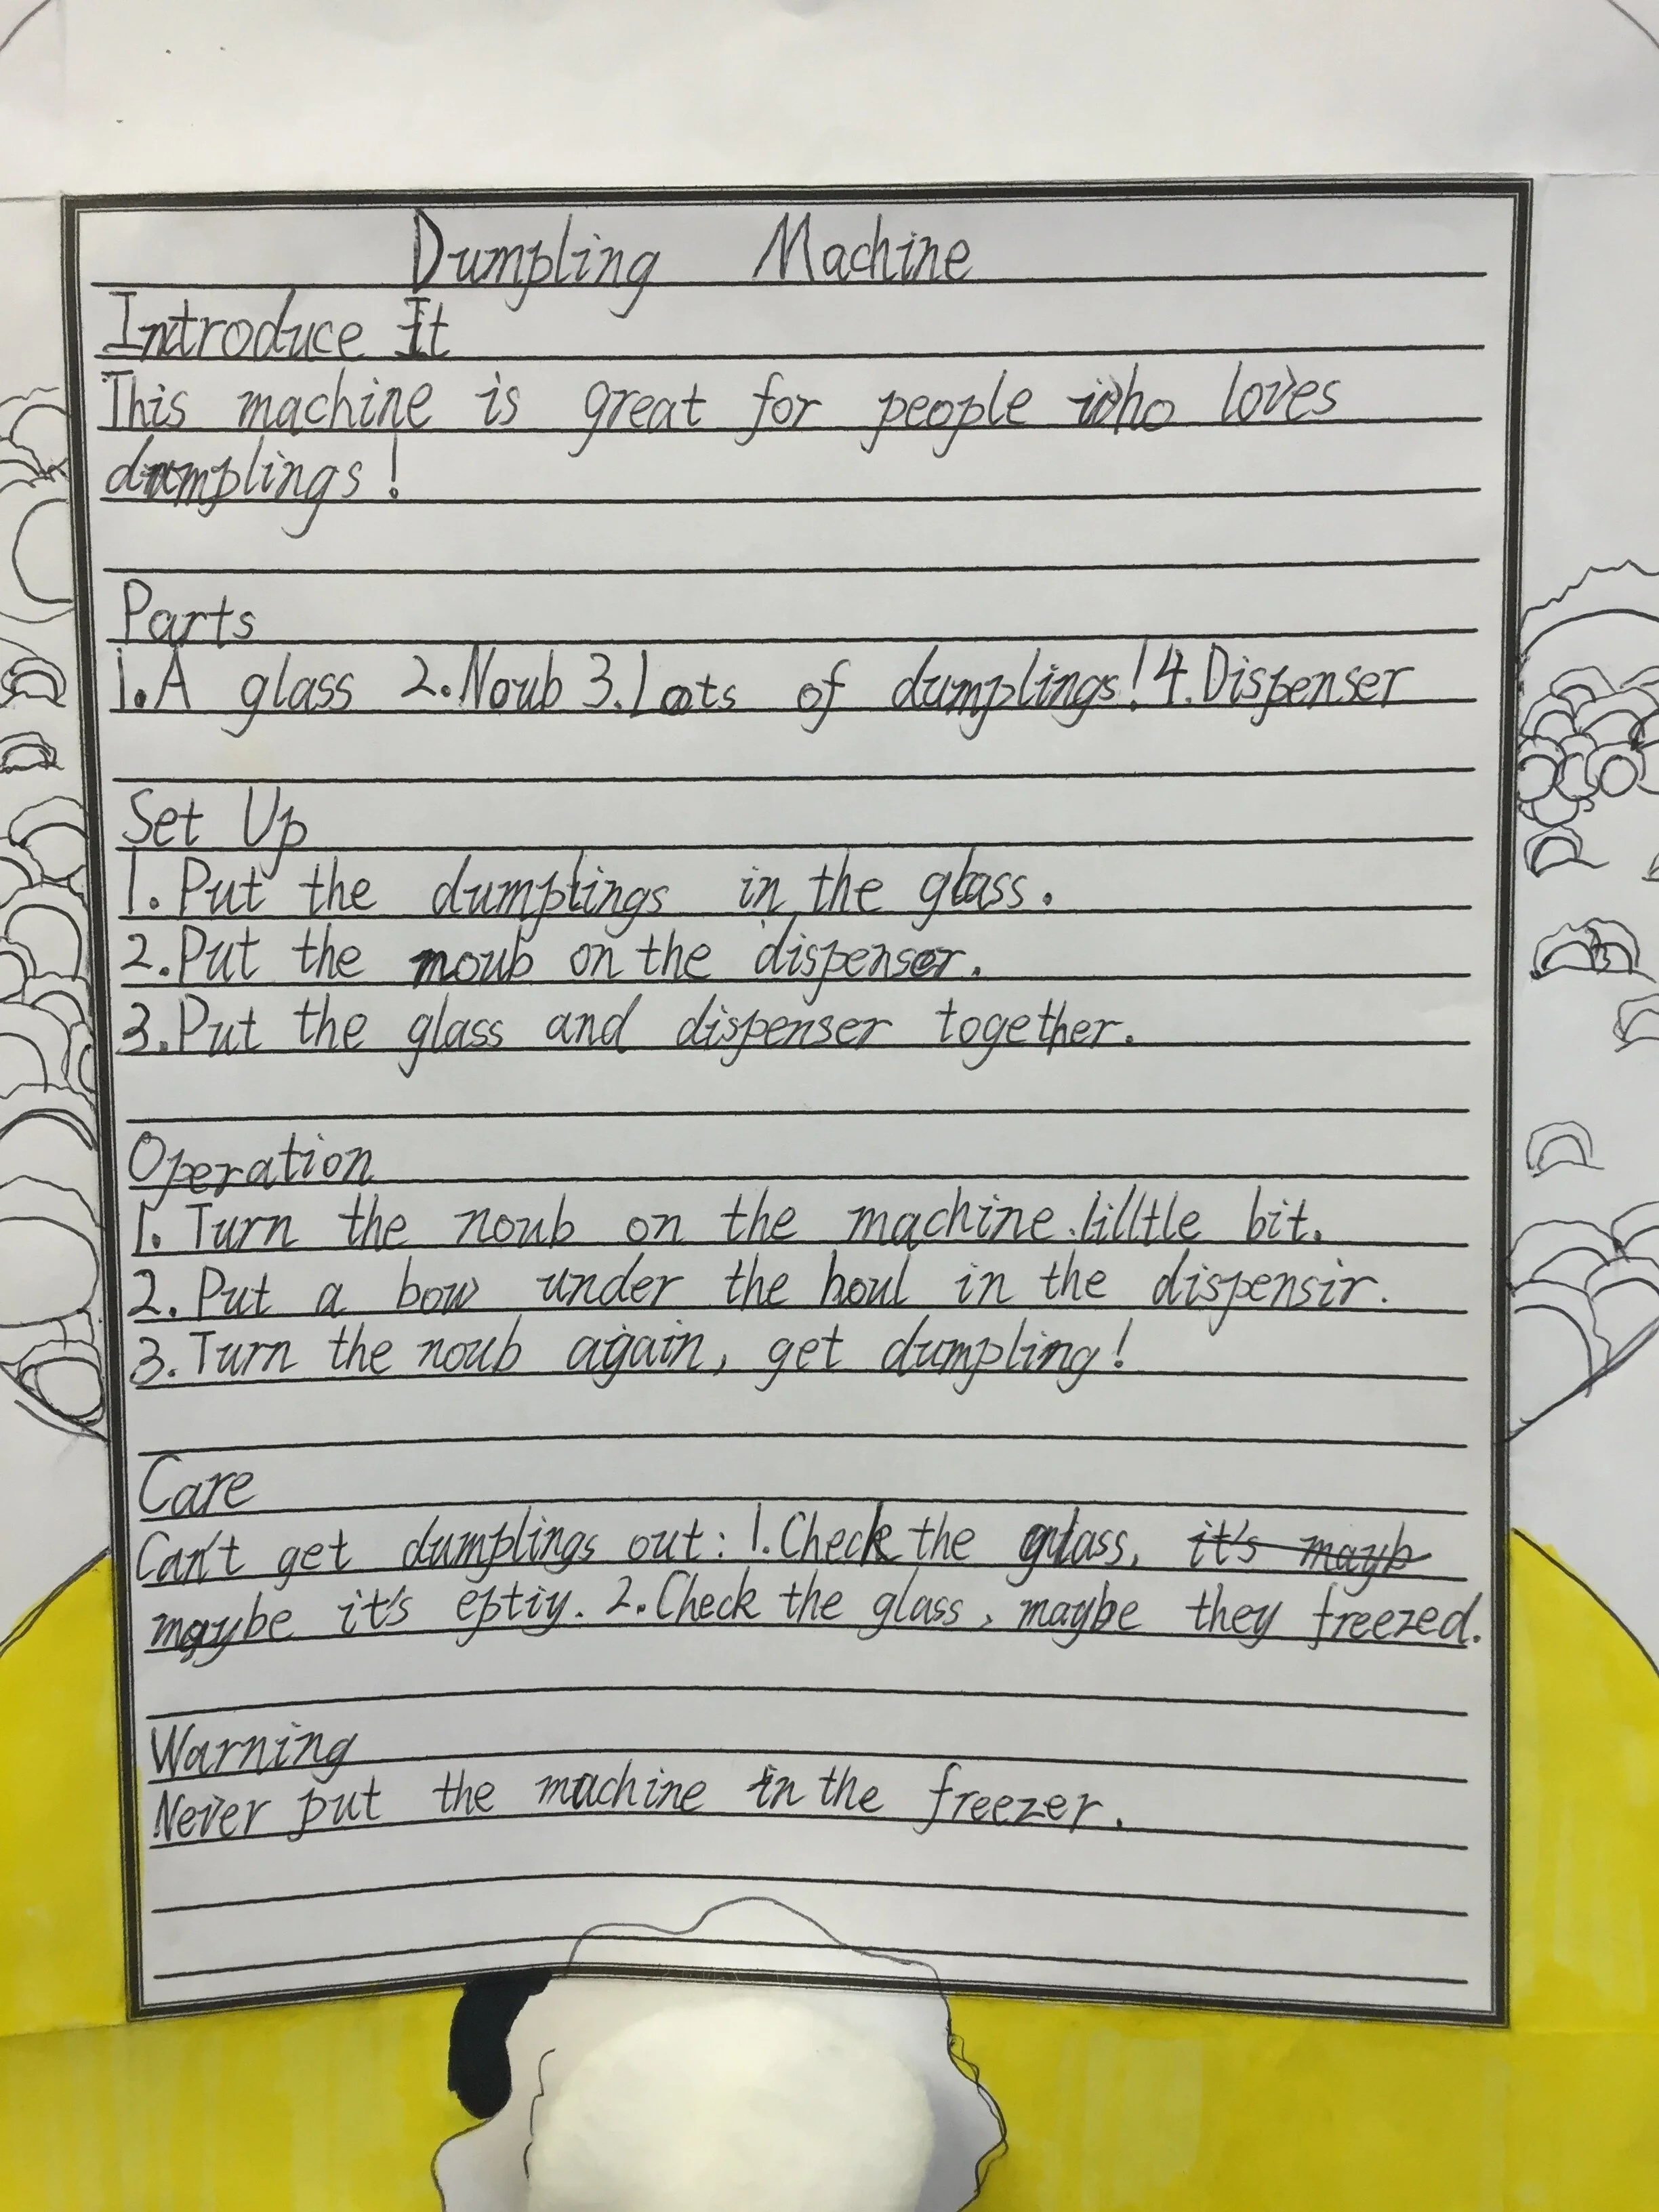 Dumpling Machine
Introduce It
This machine is great for people who loves
dumplings!
Parts
1.A glass 2.Noub 3.Loots of dumplings! 4.Dispenser
Set Up
1. Put the dumplings in the glass.
2. Put the noub on the dispenser.
3. Put the glass and dispenser together.
Operation
1. Turn the noub on the machine. lilltle bit.
2. Put a bow under the houl in the dispensir.
3. Turn the noub again, get dumpling!
Care
Can't get dumplings out: 1. Check the glass, it's mayb
maybe it's eptiy. 2. Check the glass, maybe they freezed.
Warning
Never put the machine in the freezer.